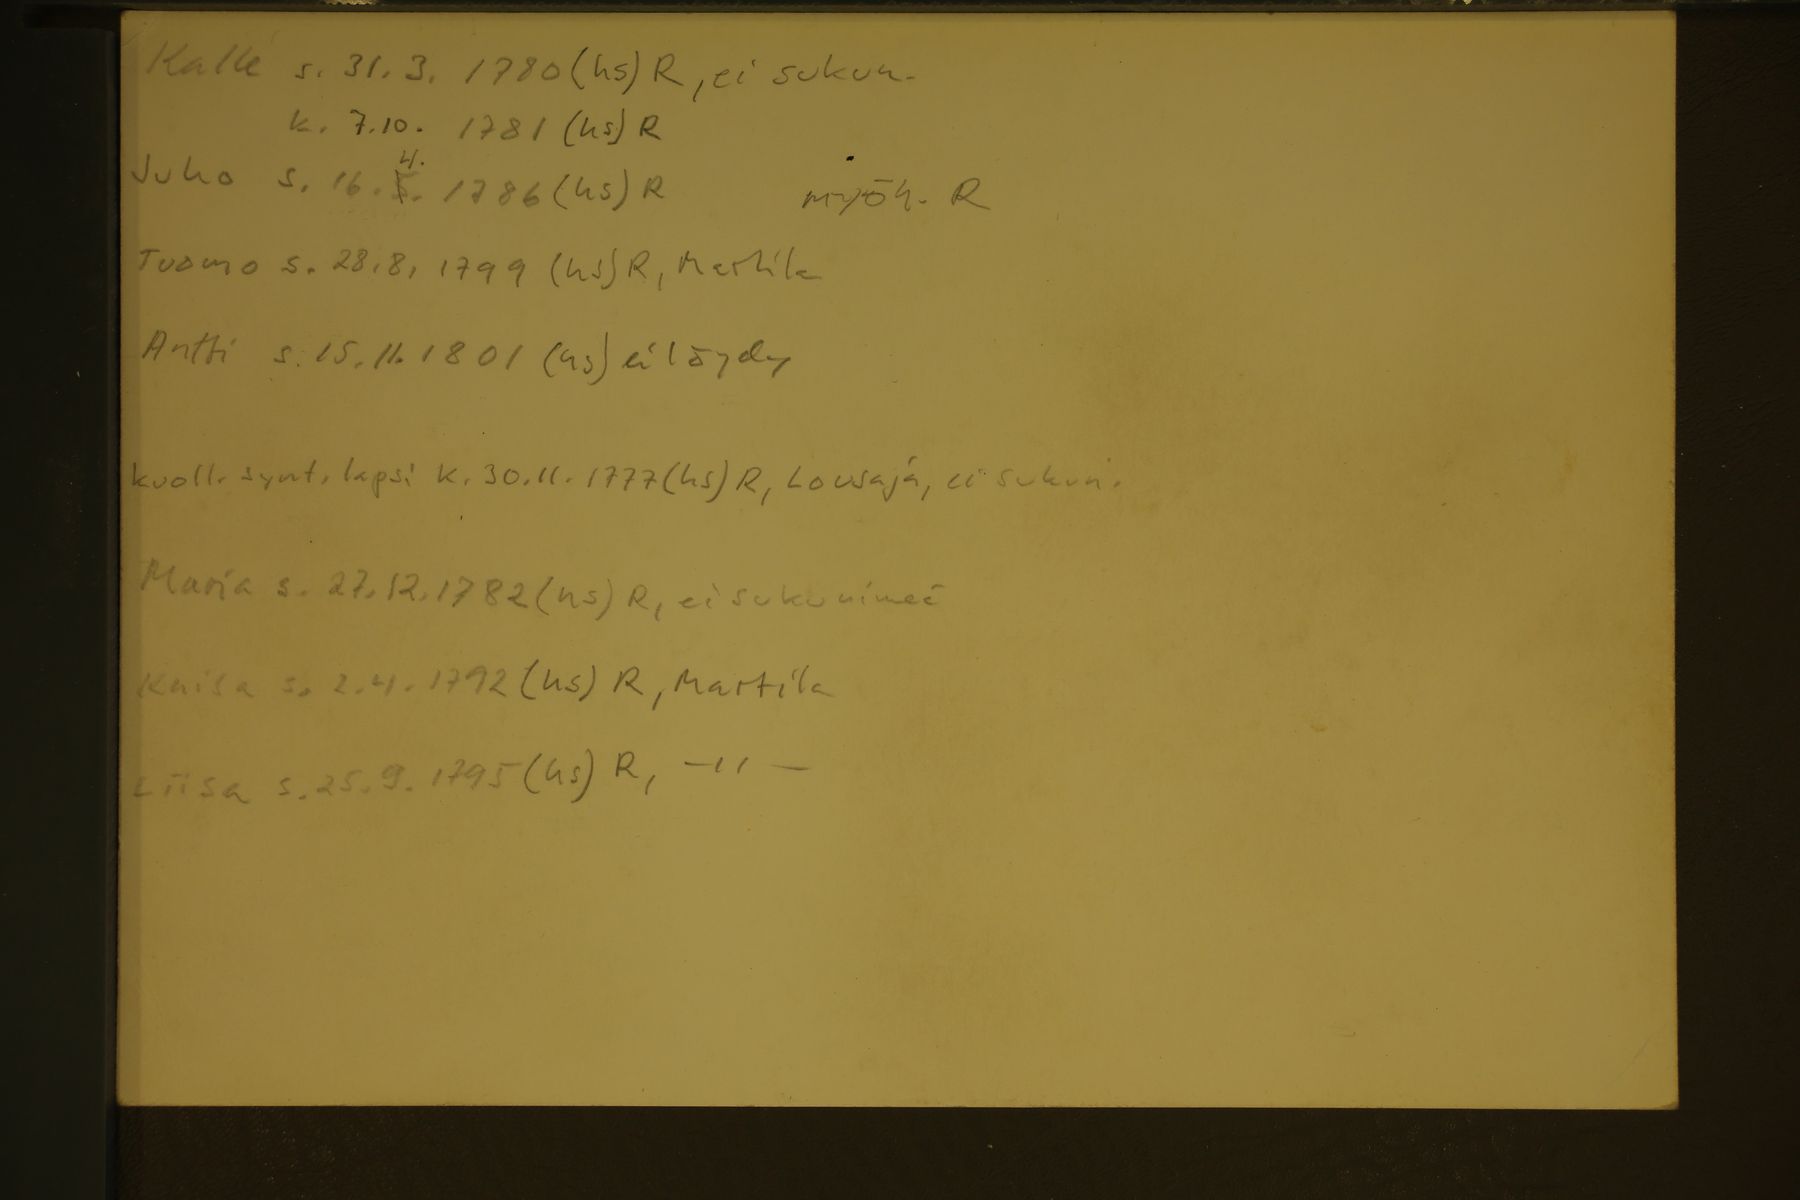 Kalle s. 31.3. 1780 (hs) R, ei sukun.
k. 7.10. 1781 (hs) R
4.
Juho s. 16.5. 1786 (hs) R myöh. R
Tuomo s. 28.8. 1799 (hs) R, Martila
Antti s. 15.11. 1801 (hs) ei löydy
kuoll. synt. lapsi k. 30.11. 1777 (hs) R, Lousaja, ei sukun.
Maria s. 27.12. 1782 (hs) R, ei sukunimeä
Kaisa s. 2.4. 1792 (hs) R, Martila
Liisa s. 25.9. 1795 (hs) R, —"—